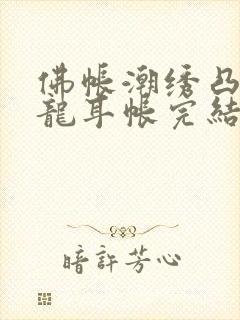 佛帐潮绣凸
龍耳帐完結
暗許芳心